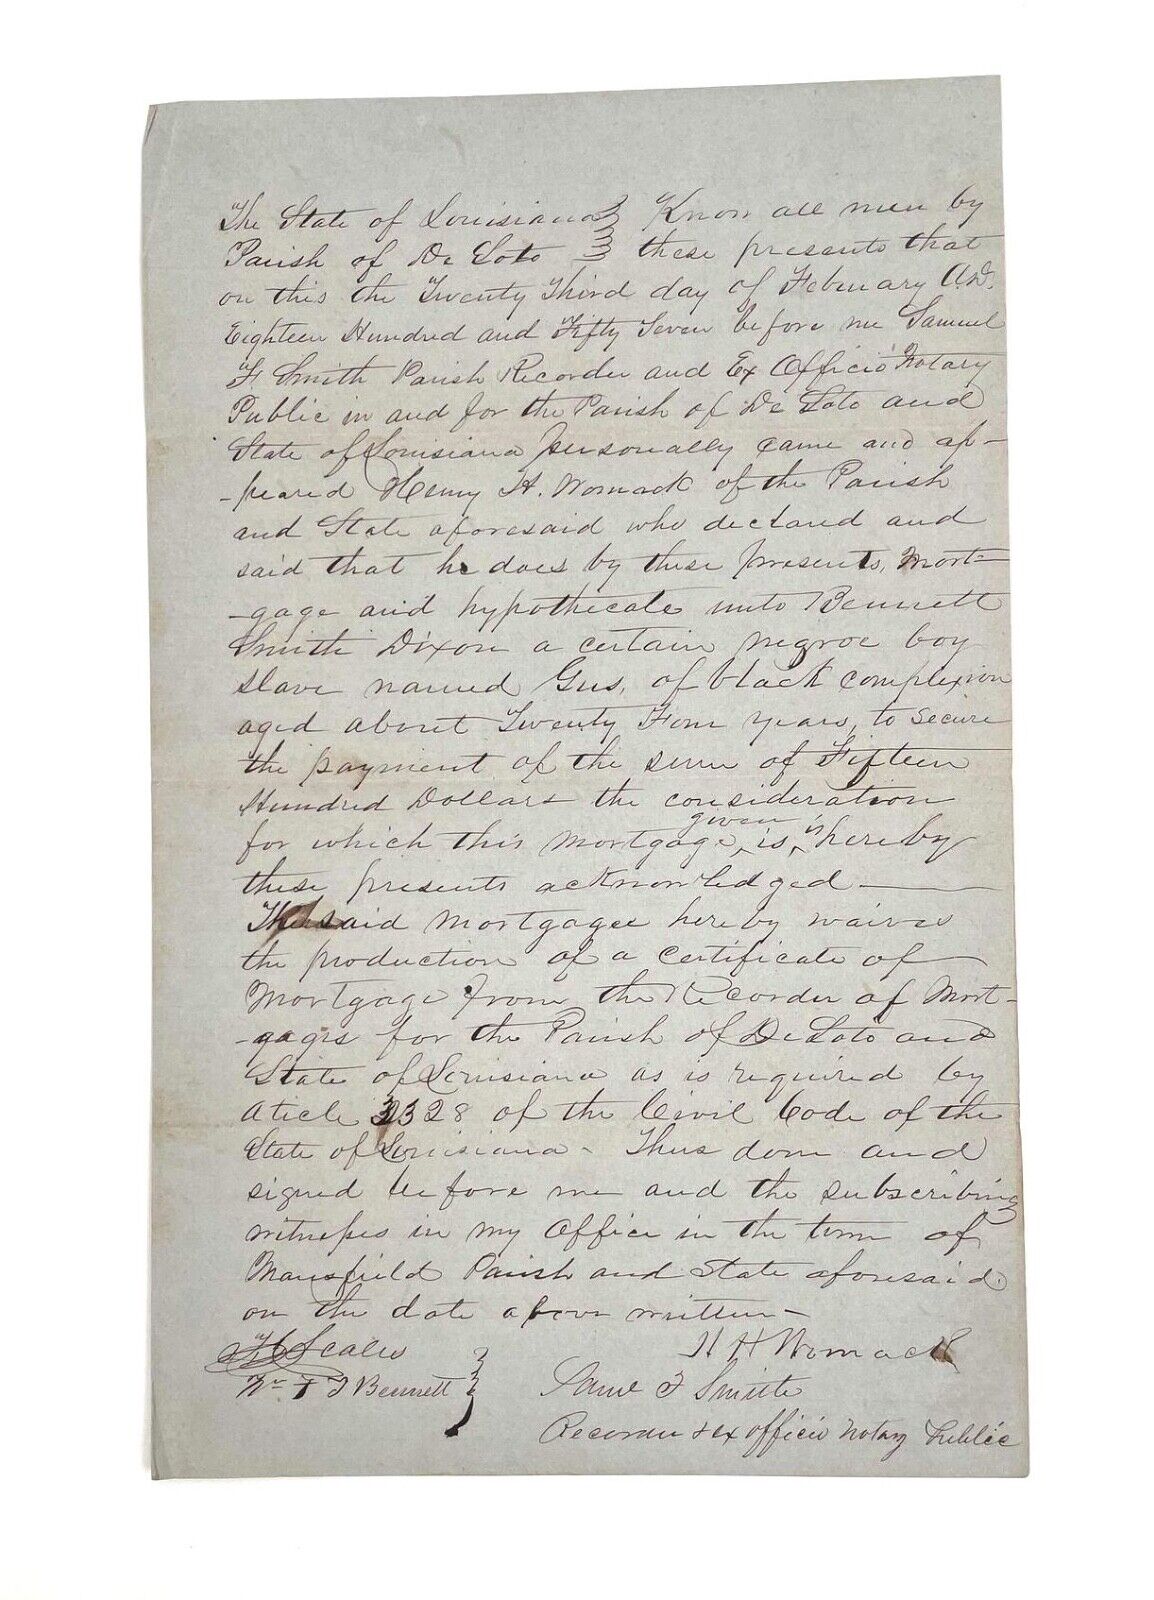 The State of Louisiana } Know all men by
Parish of De Soto } these presents that
on this the Twenty Third day of February A.D.
Eighteen Hundred and Fifty Seven before me Samuel
F Smith Parish Recorder and Ex Officio Notary
Public in and for the Parish of De Soto and
State of Louisiana personally came and ap-
-peared Henry H. Womack of the Parish
and State aforesaid who declared and
said that he does by these presents, mort-
-gage and hypothecate unto Bennett
Smith Dixon a certain negroe boy
slave named Gus, of black complexion
aged about Twenty Four years, to secure
the payment of the sum of Fifteen
Hundred Dollars the consideration
for which this mortgage given is hereby
these presents acknowledged
The said Mortgagee hereby waives
the production of a certificate of
Mortgage from the Recorder of Mort-
-gages for the Parish of De Soto and
State of Louisiana as is required by
Aticle 3328 of the Civil Code of the
State of Louisiana - Thus done and
signed before me and the subscribing
witnesses in my Office in the town of
Mansfield Parish and State aforesaid.
on the date above written -
Scales } H H Womack
Bennett } Saml F Smith
Recorder & ex officio Notary Public